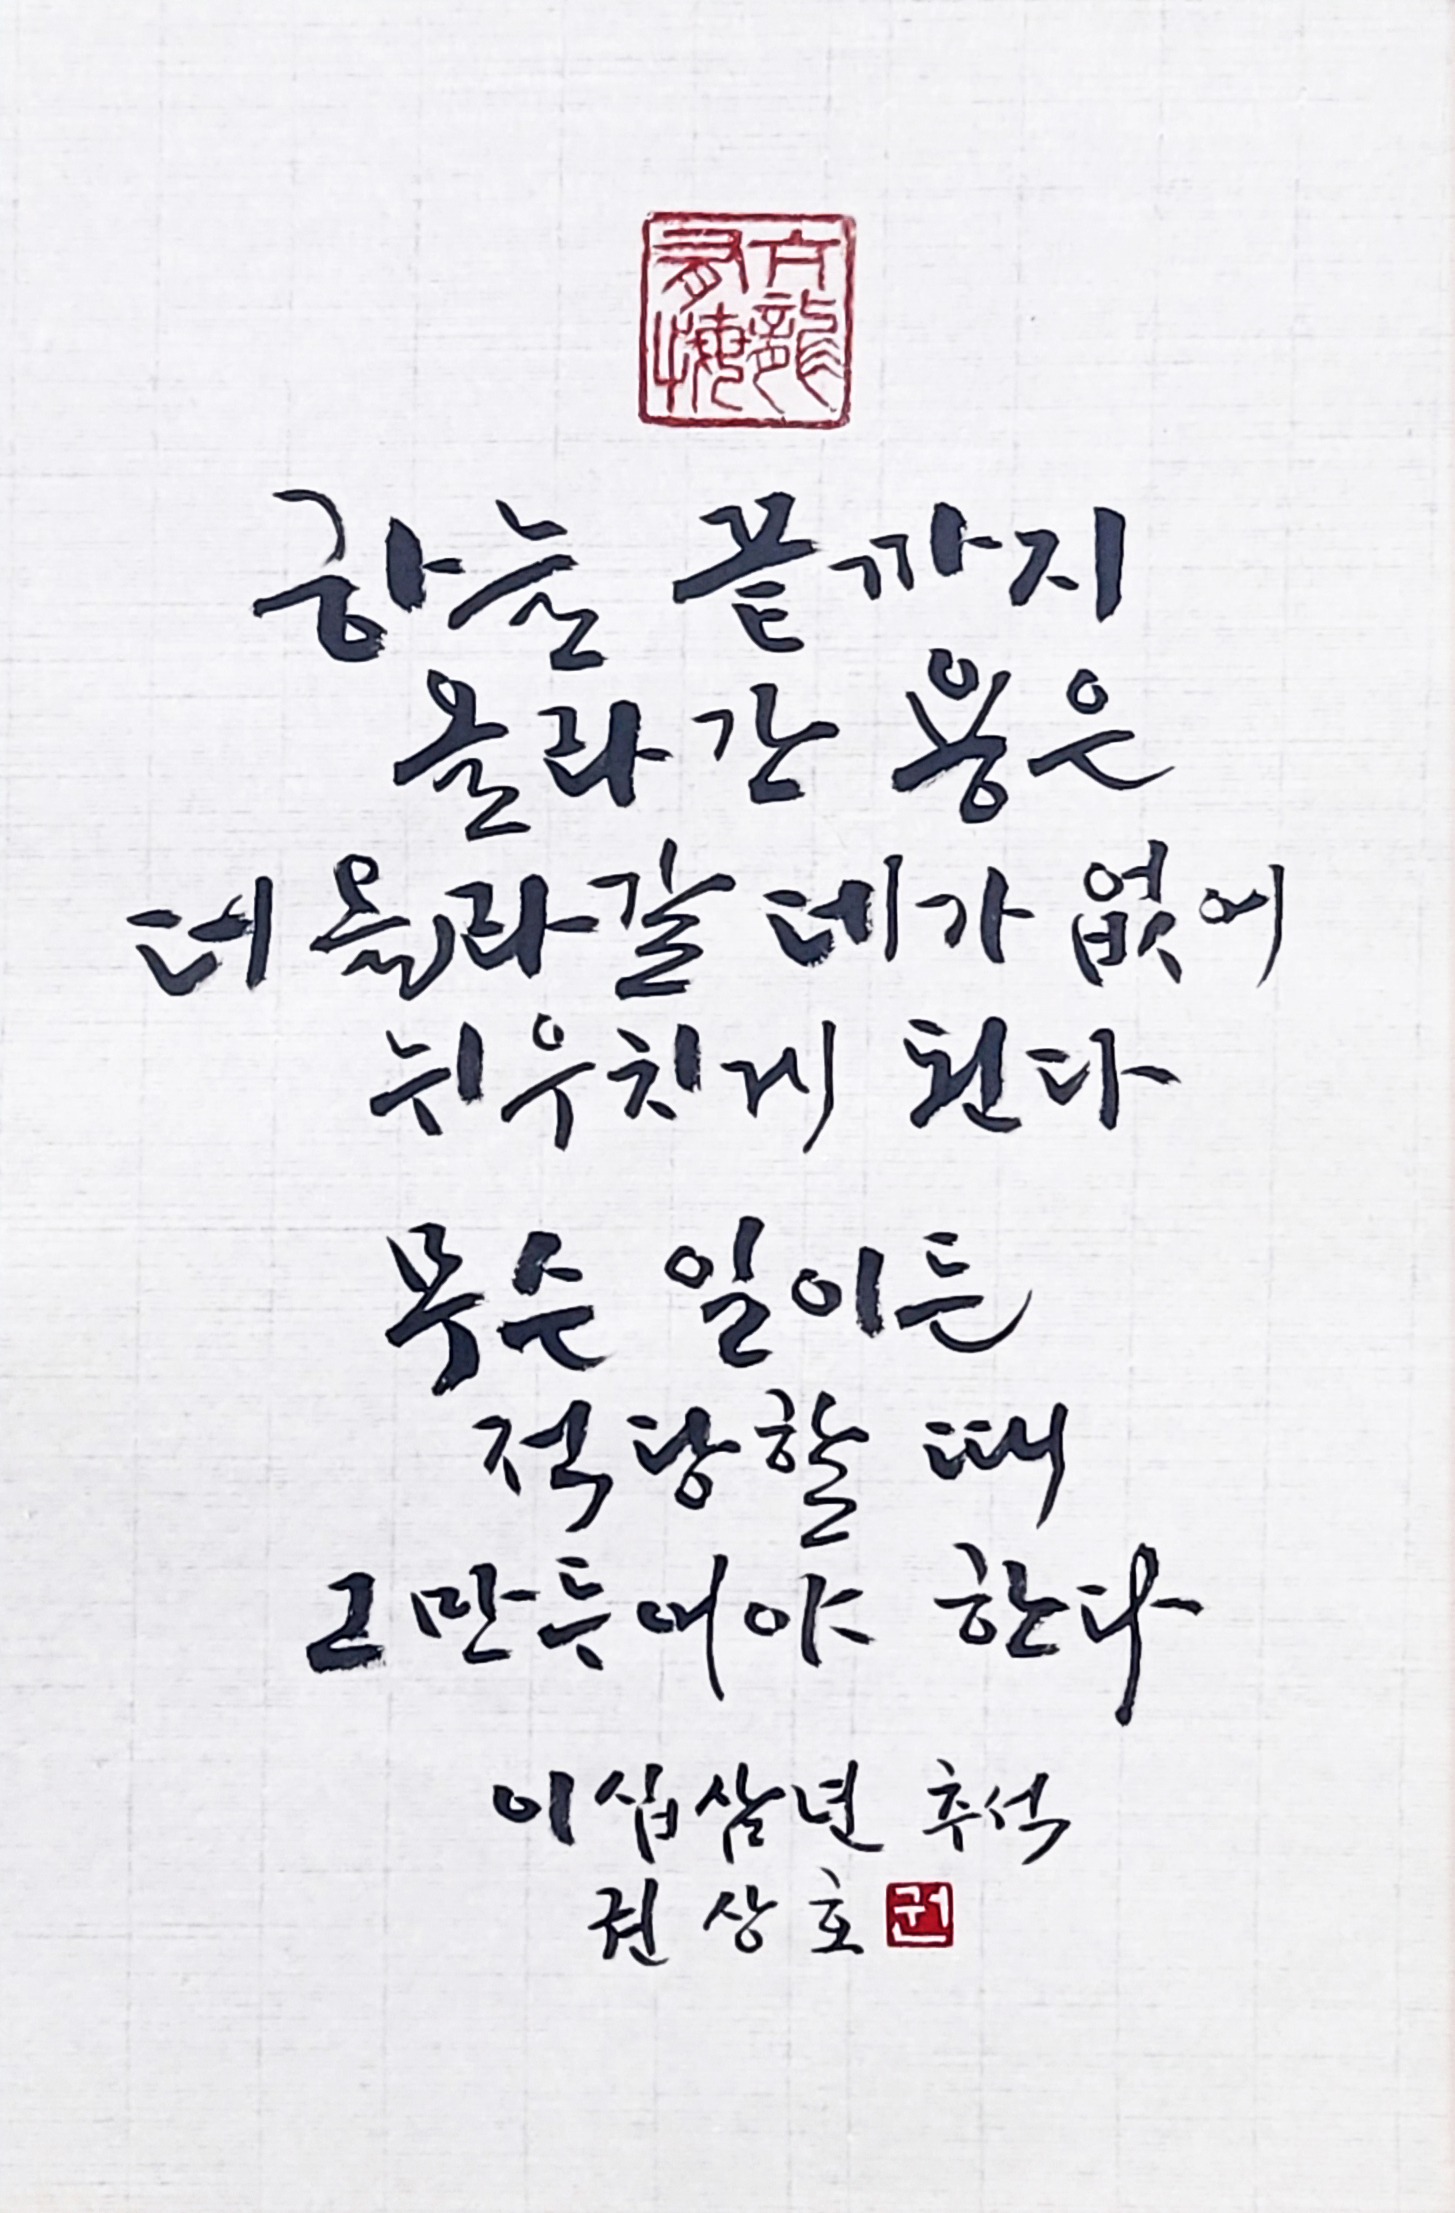 亢龍有悔
하늘 끝까지
올라간 용은
더 올라갈 데가 없어
뉘우치게 된다
무슨 일이든
적당할 때
그만두어야 한다
이십삼년 추석
권상호 권